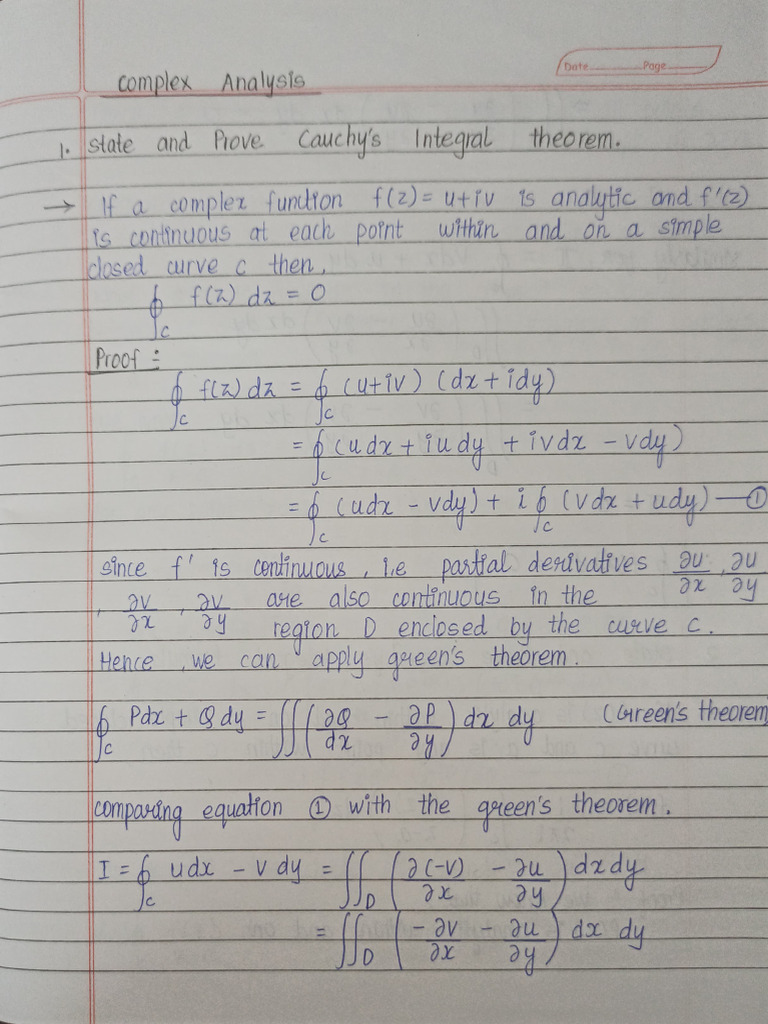 Date Page
Complex Analysis
1. State and Prove Cauchy's Integral theorem.
→ If a complex function f(z) = u+iv is analytic and f'(z)
is continuous at each point within and on a simple
closed curve c then,
∮_c f(z) dz = 0
Proof :
∮_c f(z) dz = ∮_c (u+iv) (dx + idy)
= ∮_c (udx + iudy + ivdx - vdy)
= ∮_c (udx - vdy) + i ∮_c (vdx + udy) — ①
since f' is continuous, i.e partial derivatives ∂u/∂x, ∂u/∂y
, ∂v/∂x, ∂v/∂y are also continuous in the
region D enclosed by the curve c.
Hence, we can apply green's theorem.
∮_c Pdx + Qdy = ∬(∂Q/dx - ∂P/∂y) dx dy (Green's theorem)
comparing equation ① with the green's theorem.
I = ∮_c udx - v dy = ∬_D (∂(-v)/∂x - ∂u/∂y) dxdy
= ∬_D (-∂v/∂x - ∂u/∂y) dx dy